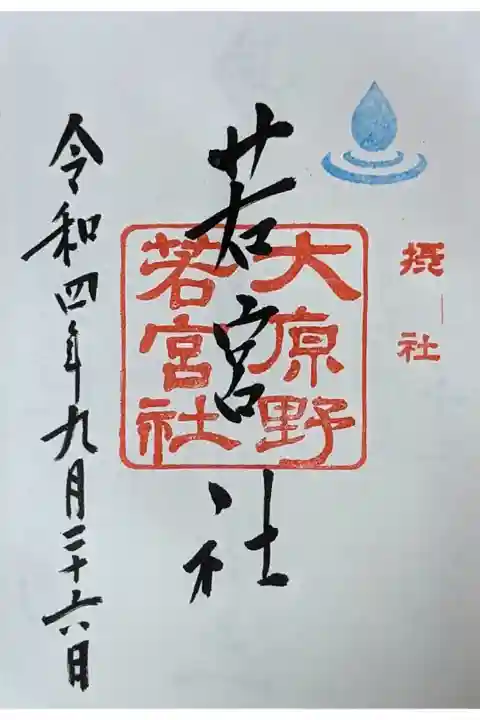 摂社
大原野
若宮社
若宮社
令和四年九月二十六日